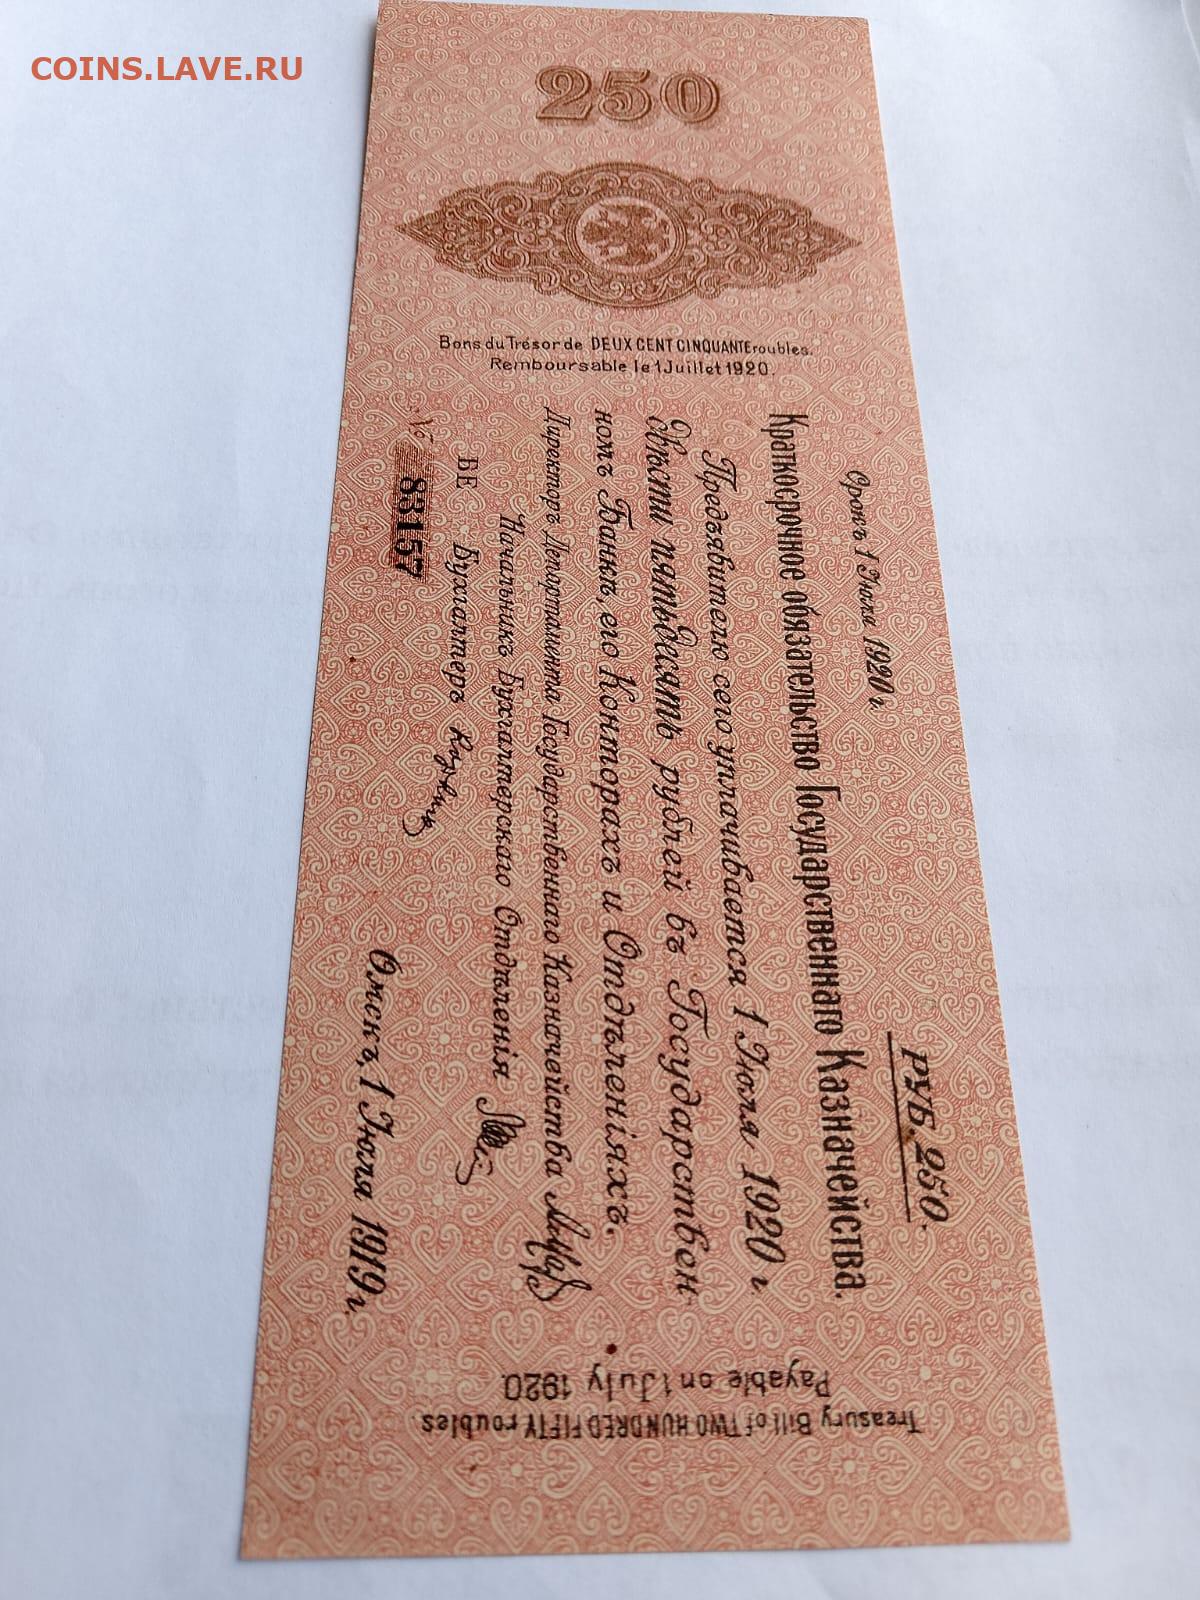 COINS.LAVE.RU
250
Bons du Trésor de DEUX CENT CINQUANTE roubles.
Remboursable le 1 Juillet 1920.
Срокъ 1 Іюля 1920 г.
РУБ. 250.
Краткосрочное обязательство Государственнаго Казначейства.
Предъявителю сего уплачивается 1 Іюля 1920 г.
Двѣсти пятьдесятъ рублей въ Государствен
номъ Банкѣ, его Конторахъ и Отдѣленіяхъ.
Директоръ Департамента Государственнаго Казначейства
Начальникъ Бухгалтерскаго Отдѣленія
БЕ Бухгалтеръ
№ 83157
Омскъ, 1 Іюля 1919 г.
Treasury Bill of TWO HUNDRED FIFTY roubles.
Payable on 1 July 1920.